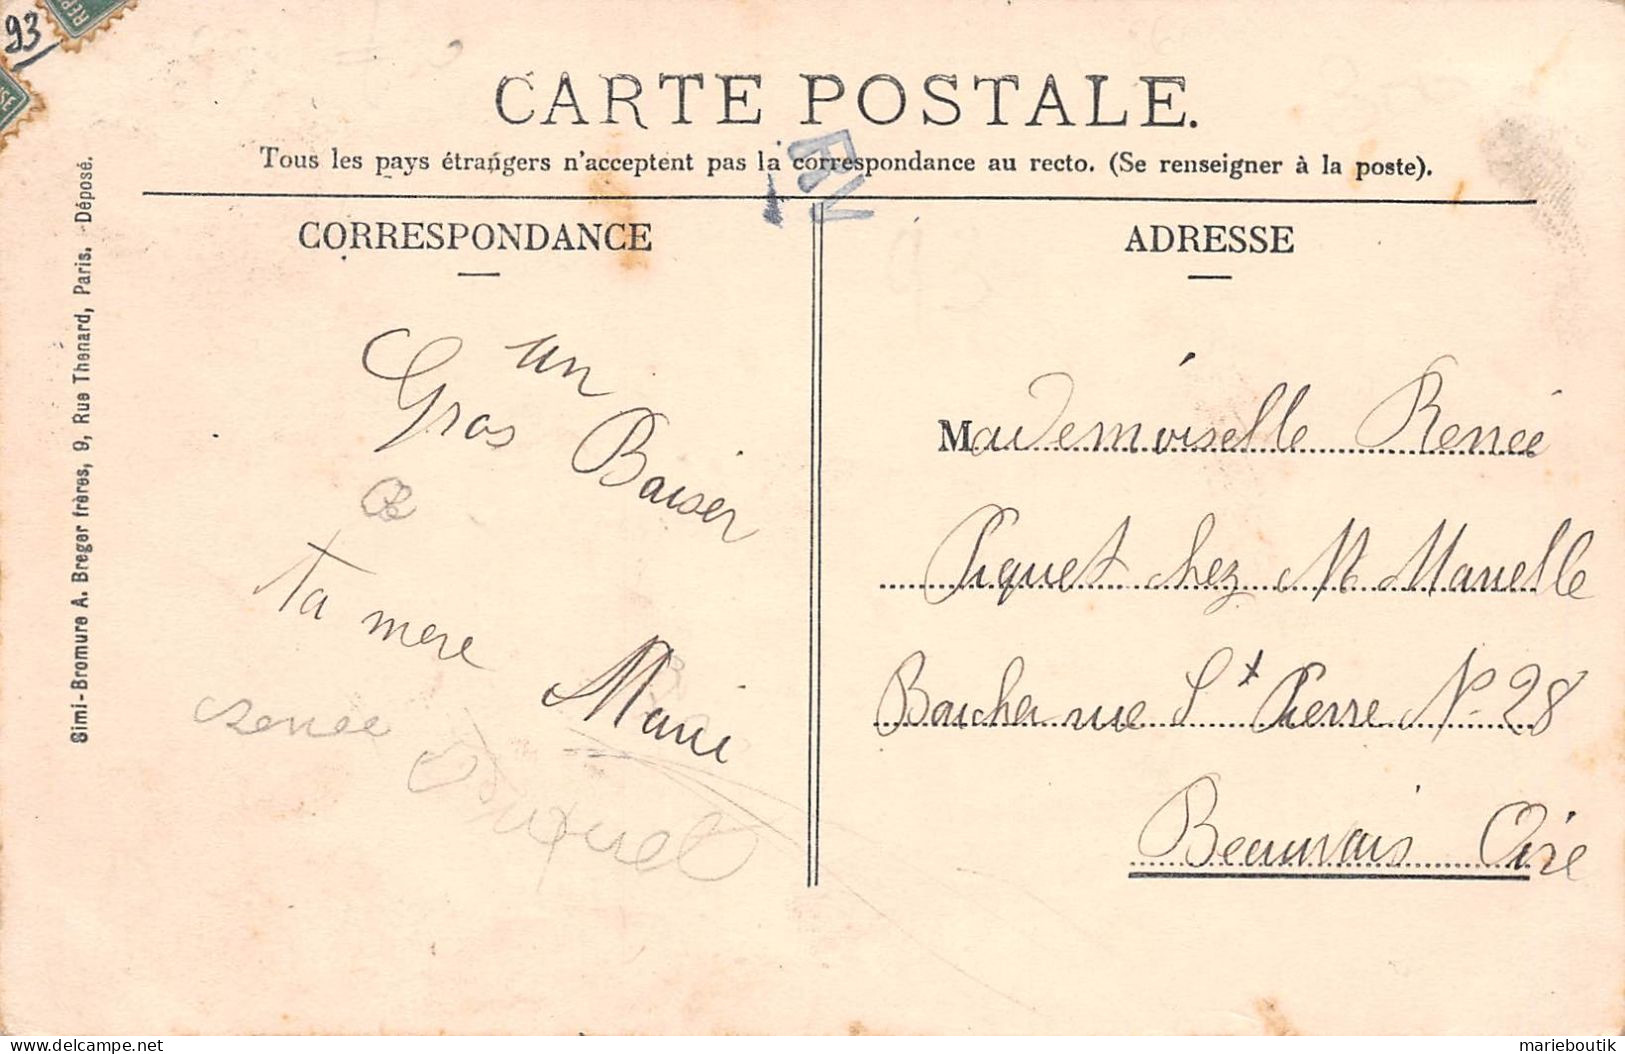 93
REP
ISE
CARTE POSTALE.
Tous les pays étrangers n'acceptent pas la correspondance au recto. (Se renseigner à la poste).
CORRESPONDANCE
ADRESSE
Simi-Bromure A. Breger frères, 9, Rue Thenard, Paris. -Déposé.
un
Gros Baiser
ta mere
Marie
renee
Mademoiselle Renée
Piquet chez M Marielle
Boucher rue St Pierre No 28
Beauvais Oise
delcampe.net
marieboutik